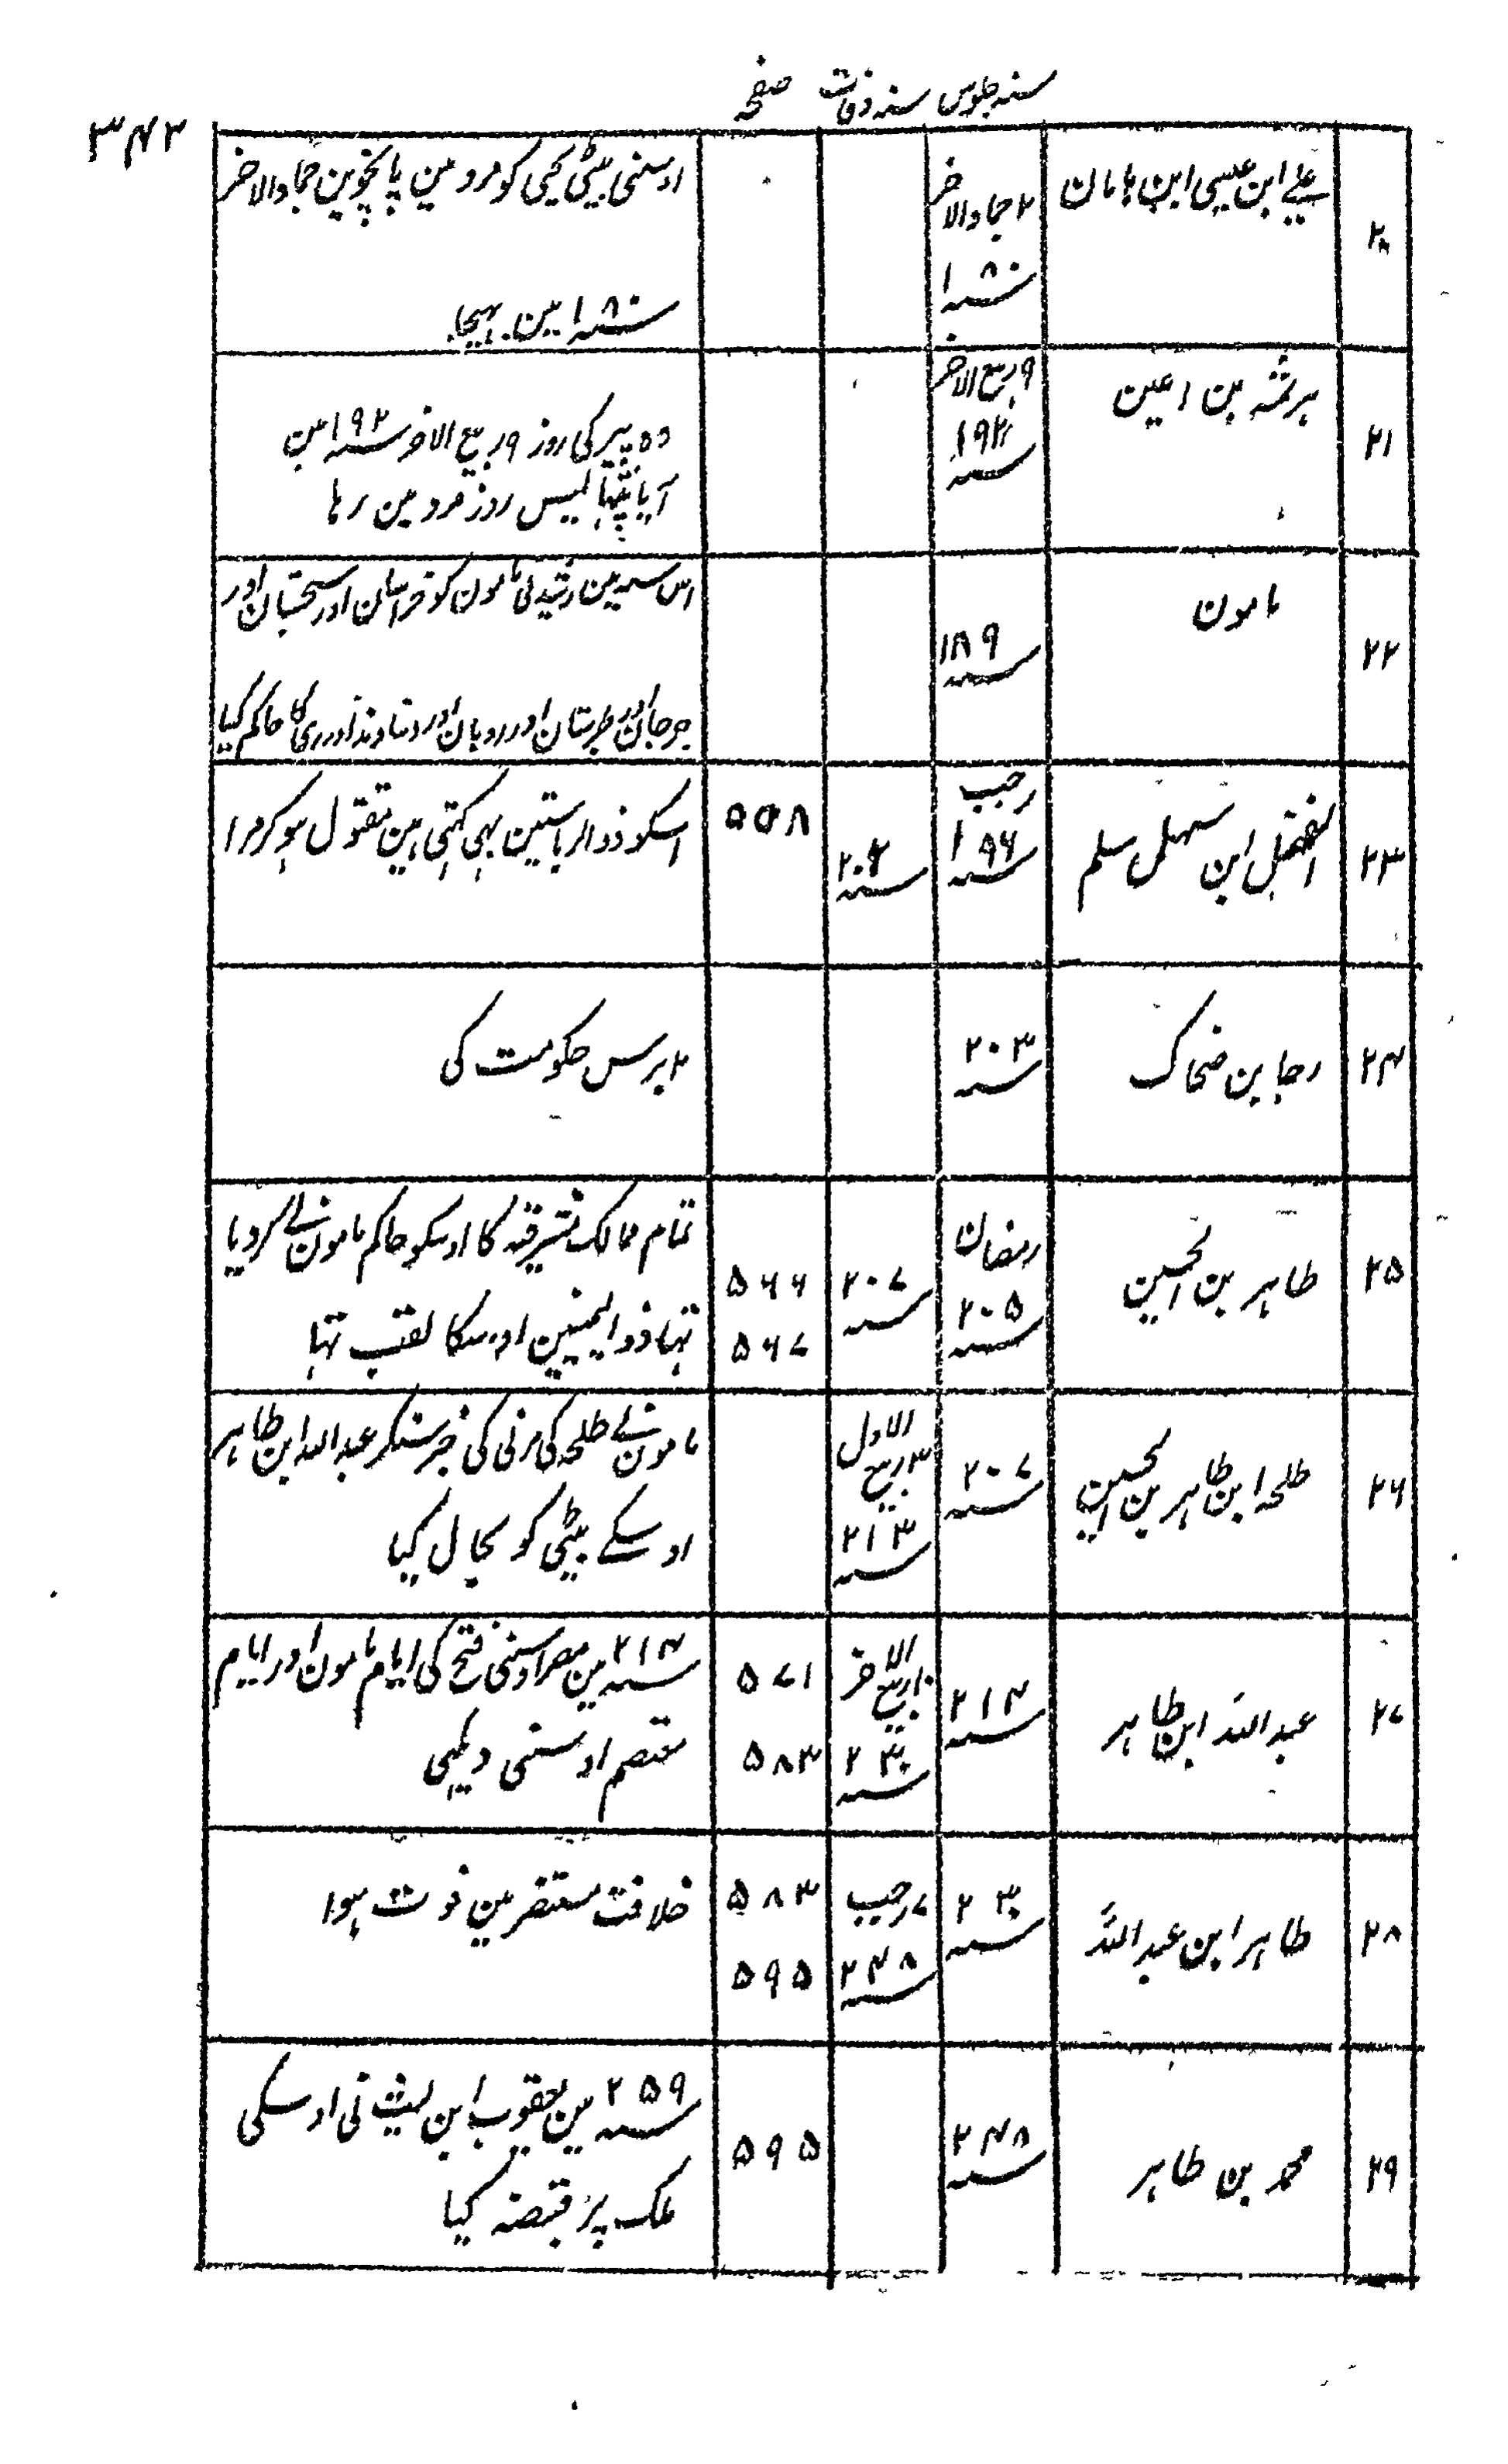 سنہ جلوس سنہ وفات صفحہ
۳۴۲
۲۰ علے ابن عیسی ابن ہامان ۲ جماد الاخر ۱۸۰ سنہ اوسنی بیٹی یحیی کو مرو مین پانچوین جماد الاخر
سنہ ۱۸۰ مین بہیجا
۲۱ ہرثمہ بن اعین ۹ ربیع الاخر ۱۹۲ سنہ وہ پیر کی روز ۹ ربیع الاخر سنہ ۱۹۲ مین
آیا روز مرو مین رہا
۲۲ مامون ۱۸۹ سنہ اس سنہ مین رشید نی مامون کو خراسان اور سجستان اور
جرجان اور طبرستان اور رویان اور دنباوند اور ری کا حاکم کیا
۲۳ الفضل ابن سہل سلم رجب ۱۹۶ سنہ ۲۰۲ سنہ ۵۵۸ اسکو ذوالریاستین بہی کہتی ہین مقتول ہو کر مرا
۲۴ رجا بن ضحاک ۲۰۳ سنہ ۲ برس حکومت کی
۲۵ طاہر بن الحسین رمضان ۲۰۵ سنہ ۲۰۷ سنہ ۵۶۶ تمام ممالک شرقیہ کا اوسکو حاکم مامون نے کردیا
۵۶۷ تہا ذوالیمینین اوسکا لقب تہا
۲۶ طلحہ ابن طاہر بن الحسین ۲۰۷ سنہ ۳ ربیع الاول ۲۱۳ سنہ مامون نے طلحہ کی مرنی کی خبر سنکر عبد اللہ ابن طاہر
اوسکے بیٹی کو بحال کیا
۲۷ عبد اللہ ابن طاہر ۲۱۴ سنہ ۱۰ ربیع الاخر ۲۳۰ سنہ ۵۷۱ سنہ ۲۱۴ مین مصر اوسنی فتح کی ایام مامون اور ایام
۵۸۳ معتصم اوسنی دیکہی
۲۸ طاہر ابن عبد اللہ ۲۳۰ سنہ ۷ رجب ۲۴۸ سنہ ۵۸۳ خلافت مستنصر مین فوت ہوا
۵۹۵
۲۹ محمد بن طاہر ۲۴۸ سنہ ۵۹۵ سنہ ۲۵۹ مین یعقوب ابن لیث نی اوسکی
ملک پر قبضہ کیا